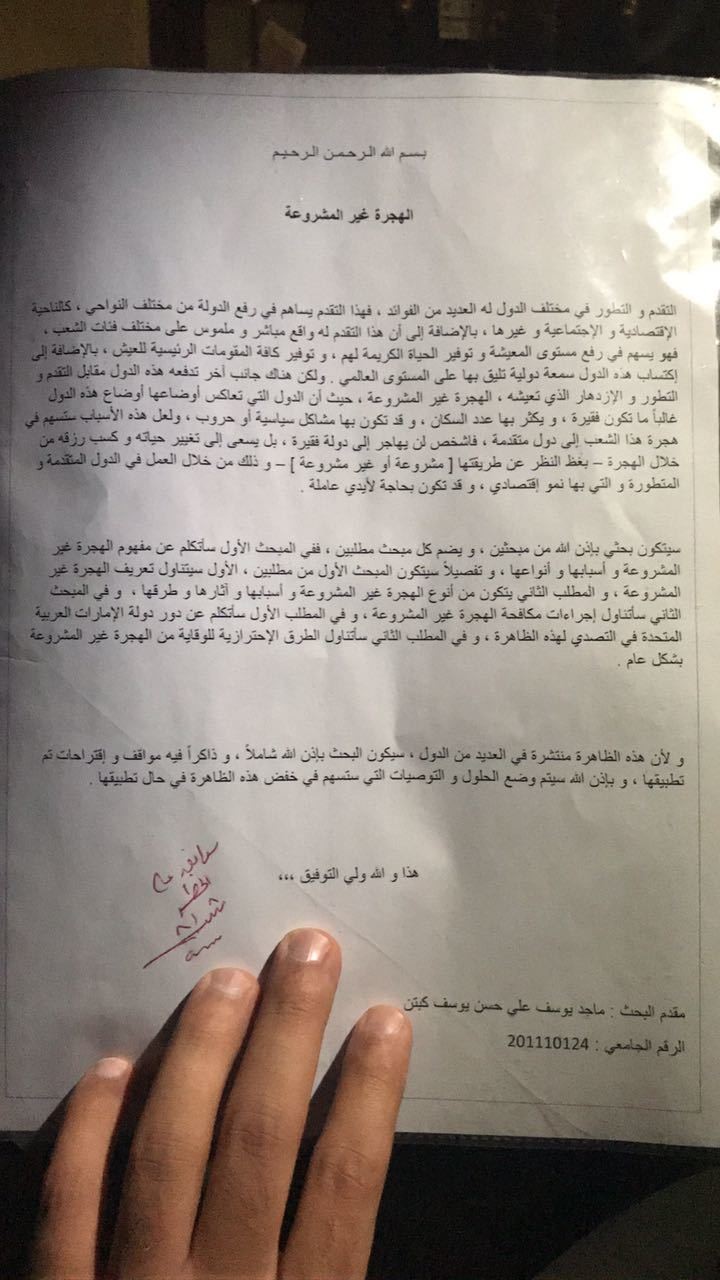 بسم الله الرحمن الرحيم
الهجرة غير المشروعة
التقدم و التطور في مختلف الدول له العديد من الفوائد ، فهذا التقدم يساهم في رفع الدولة من مختلف النواحي ، كالناحية
الإقتصادية و الإجتماعية و غيرها ، بالإضافة إلى أن هذا التقدم له واقع مباشر و ملموس على مختلف فئات الشعب ،
فهو يسهم في رفع مستوى المعيشة و توفير الحياة الكريمة لهم ، و توفير كافة المقومات الرئيسية للعيش ، بالإضافة إلى
إكتساب هذه الدول سمعة دولية تليق بها على المستوى العالمي . ولكن هناك جانب أخر تدفعه هذه الدول مقابل التقدم و
التطور و الإزدهار الذي تعيشه ، الهجرة غير المشروعة ، حيث أن الدول التي تعاكس أوضاعها أوضاع هذه الدول
غالباً ما تكون فقيرة ، و يكثر بها عدد السكان ، و قد تكون بها مشاكل سياسية أو حروب ، ولعل هذه الأسباب ستسهم في
هجرة هذا الشعب إلى دول متقدمة ، فاشخص لن يهاجر إلى دولة فقيرة ، بل يسعى إلى تغيير حياته و كسب رزقه من
خلال الهجرة – بغظ النظر عن طريقتها [ مشروعة أو غير مشروعة ] – و ذلك من خلال العمل في الدول المتقدمة و
المتطورة و التي بها نمو إقتصادي ، و قد تكون بحاجة لأيدي عاملة .
سيتكون بحثي بإذن الله من مبحثين ، و يضم كل مبحث مطلبين ، ففي المبحث الأول سأتكلم عن مفهوم الهجرة غير
المشروعة و أسبابها و أنواعها ، و تفصيلاً سيتكون المبحث الأول من مطلبين ، الأول سيتناول تعريف الهجرة غير
المشروعة ، و المطلب الثاني يتكون من أنوع الهجرة غير المشروعة و أسبابها و آثارها و طرقها ، و في المبحث
الثاني سأتناول إجراءات مكافحة الهجرة غير المشروعة ، و في المطلب الأول سأتكلم عن دور دولة الإمارات العربية
المتحدة في التصدي لهذه الظاهرة ، و في المطلب الثاني سأتناول الطرق الإحترازية للوقاية من الهجرة غير المشروعة
بشكل عام .
و لأن هذه الظاهرة منتشرة في العديد من الدول ، سيكون البحث بإذن الله شاملاً ، و ذاكراً فيه مواقف و إقتراحات تم
تطبيقها ، و بإذن الله سيتم وضع الحلول و التوصيات التي ستسهم في خفض هذه الظاهرة في حال تطبيقها .
هذا و الله ولي التوفيق ،،،
مقدم البحث : ماجد يوسف علي حسن يوسف كبتن
الرقم الجامعي : 201110124